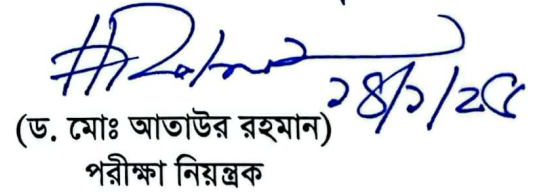 ১৪/১/২৫
(ড. মোঃ আতাউর রহমান)
পরীক্ষা নিয়ন্ত্রক